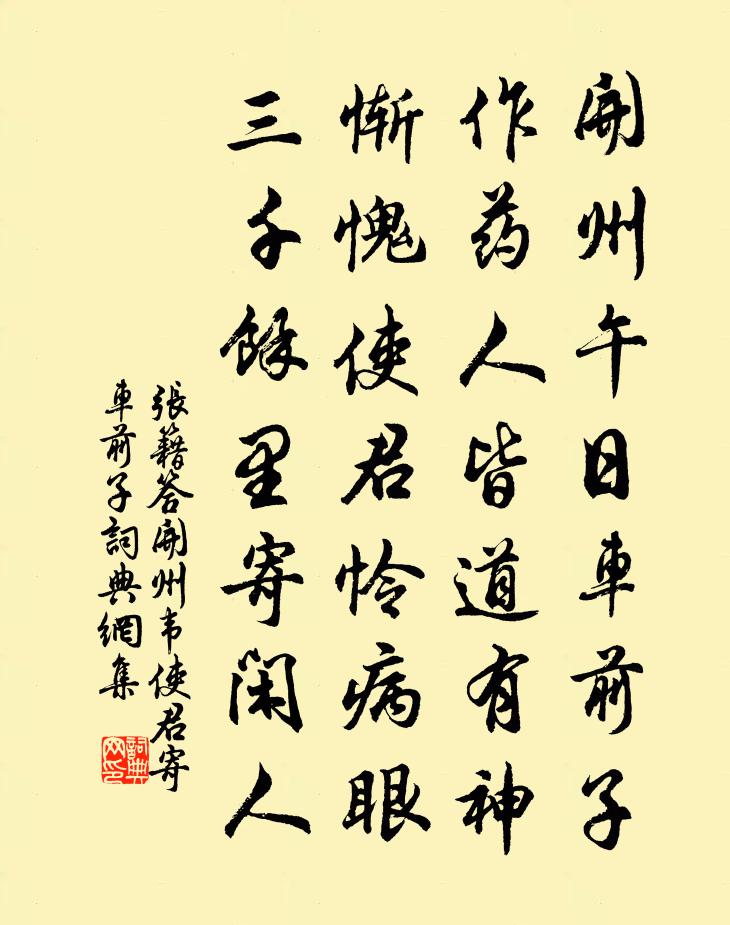 開州午日車前子
作药人皆道有神
慚愧使君怜病眼
三千餘里寄閑人
張籍答開州韦使君寄
車前子詞典網集
詞典
网印